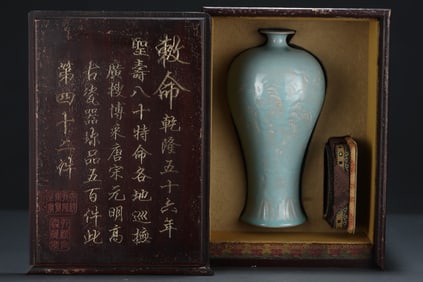 敕命乾隆五十六年
聖壽八十特命各地巡撫
廣搜博采唐宋元明高
古瓷器珍品五百件此
第四十二件